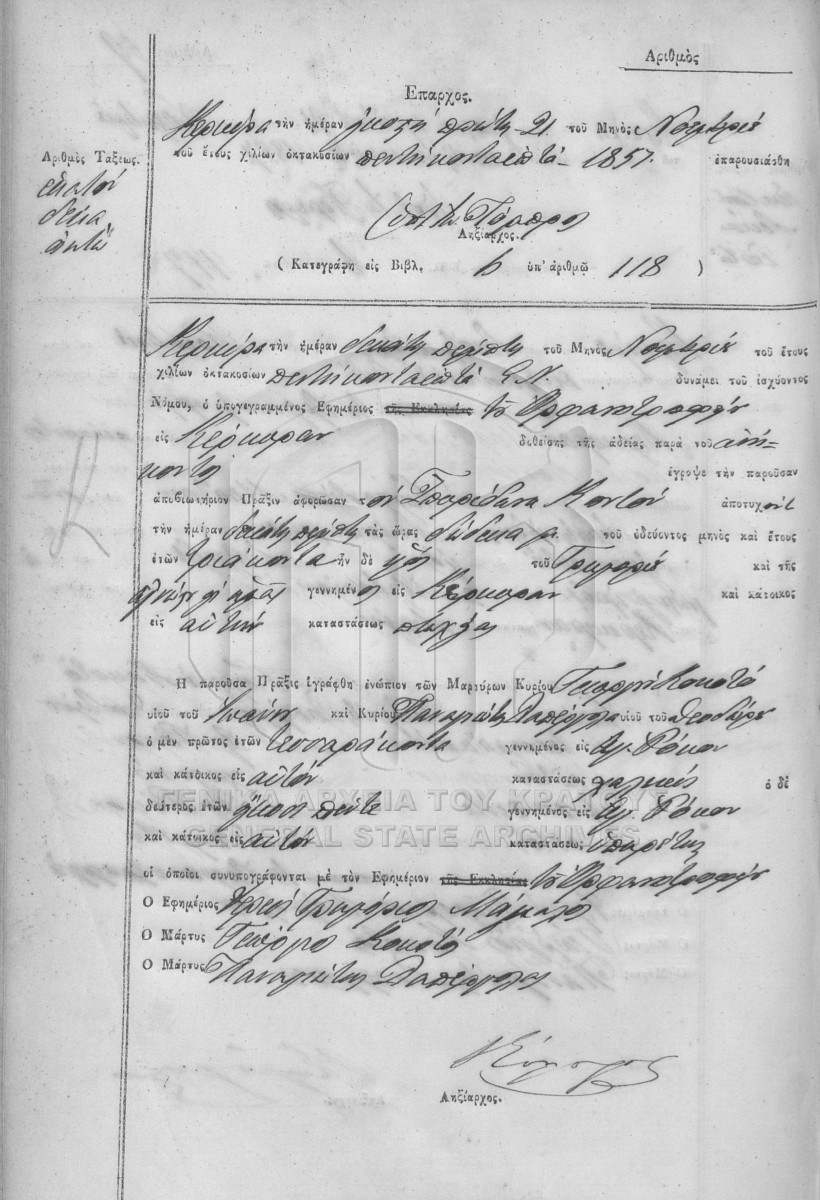 Ἀριθμὸς
Ἔπαρχος.
Κέρκυρα τὴν ἡμέραν εἰκοστὴ πρώτη 21 τοῦ Μηνὸς Νοεμβρίου
Ἀριθμὸς Τάξεως.
τοῦ ἔτους χιλίων ὀκτακοσίων πεντήκοντα ἑπτά - 1857. ἐπαρουσιάσθη
ἑκατὸν
δέκα
ὀκτὼ
Ληξίαρχος.
( Κατεγράφη εἰς Βιβλ. b ὑπ' ἀριθμῷ 118 )
Κέρκυρα τὴν ἡμέραν δεκάτη πέμπτη τοῦ Μηνὸς Νοεμβρίου τοῦ ἔτους
χιλίων ὀκτακοσίων πεντήκοντα ἑπτὰ Ε.Ν. δυνάμει τοῦ ἰσχύοντος
Νόμου, ὁ ὑπογεγραμμένος Ἐφημέριος τῆς Ἐκκλησίας τοῦ Ὀρφανοτροφείου
εἰς Κέρκυραν δοθείσης τῆς ἀδείας παρὰ τοῦ ἀνή-
κοντος ἔγραψε τὴν παροῦσαν
ἀποβιωτήριον Πράξιν ἀφορῶσαν τὸν Σπυρίδωνα Κοντὸν ἀποτυχόντ
τὴν ἡμέραν δεκάτη πέμπτη τὰς ὥρας δώδεκα μ. τοῦ ὁδεύοντος μηνὸς καὶ ἔτους
ἐτῶν τριάκοντα ἦν δὲ υἱὸς τοῦ Γρηγορίου καὶ τῆς
γεννημένος εἰς Κέρκυραν καὶ κάτοικος
εἰς αὐτὴν καταστάσεως
Ἡ παροῦσα Πράξις ἐγράφθη ἐνώπιον τῶν Μαρτύρων Κυρίου Γεωργίου Κοκοτοῦ
υἱοῦ τοῦ Ἰωάννου καὶ Κυρίου Παναγιώτου υἱοῦ τοῦ Θεοδώρου
ὁ μὲν πρῶτος ἐτῶν τεσσαράκοντα γεννημένος εἰς Ἁγ. Ρόκον
καὶ κάτοικος εἰς αὐτὸν καταστάσεως ὁ δὲ
δεύτερος ἐτῶν εἴκοσι πέντε γεννημένος εἰς Ἁγ. Ρόκον
καὶ κάτοικος εἰς αὐτὸν καταστάσεως ὑπηρέτης
οἱ ὁποῖοι συνυπογράφονται μὲ τὸν Ἐφημέριον τῆς Ἐκκλησίας τοῦ Ὀρφανοτροφείου
Ὁ Ἐφημέριος Ἱερεὺς Γρηγόριος
Ὁ Μάρτυς Γεώργιος Κοκοτός
Ὁ Μάρτυς Παναγιώτης
Ληξίαρχος.
ΓΕΝΙΚΑ ΑΡΧΕΙΑ ΤΟΥ ΚΡΑΤΟΥΣ
GENERAL STATE ARCHIVES